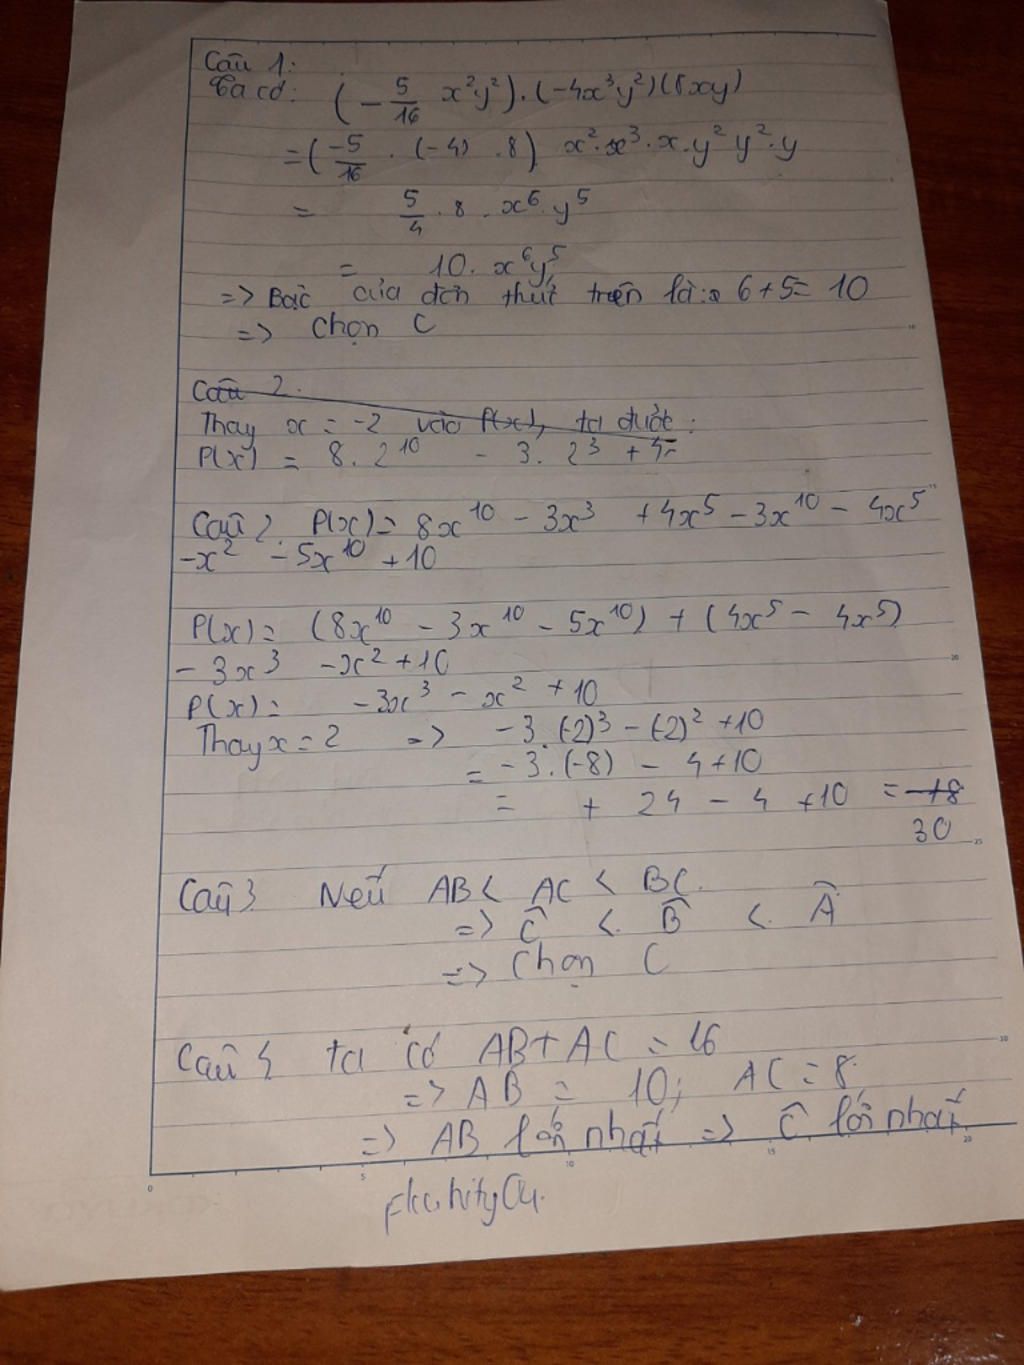 Câu 1:
Ta có: (- 5/16 x²y²).(-4x³y²)(8xy)
= (-5/16 . (-4) . 8) x².x³.x.y² y².y
= 5/4 . 8 . x⁶.y⁵
= 10. x⁶y⁵
=> Bậc của đơn thức trên là: 6+5= 10
=> Chọn C
Câu 2.
Thay x = -2 vào P(x), ta được:
P(x) = 8.2¹⁰ - 3. 2³ + 4
Câu 2. P(x)= 8x¹⁰ - 3x³ +4x⁵ - 3x¹⁰ - 4x⁵
-x² - 5x¹⁰ +10
P(x)= (8x¹⁰ - 3x¹⁰ - 5x¹⁰) + (4x⁵ - 4x⁵)
- 3x³ -x² +10
P(x)= -3x³ - x² +10
Thay x = 2 => -3.(-2)³ - (-2)² +10
= -3.(-8) - 4+10
= + 24 - 4 +10 = -18
30
Câu 3 Nếu AB < AC < BC.
=> Ĉ < B̂ < Â
=> Chọn C
Câu ta có AB+AC = 16
=> AB = 10; AC = 8.
=> AB lớn nhất => Ĉ lớn nhất